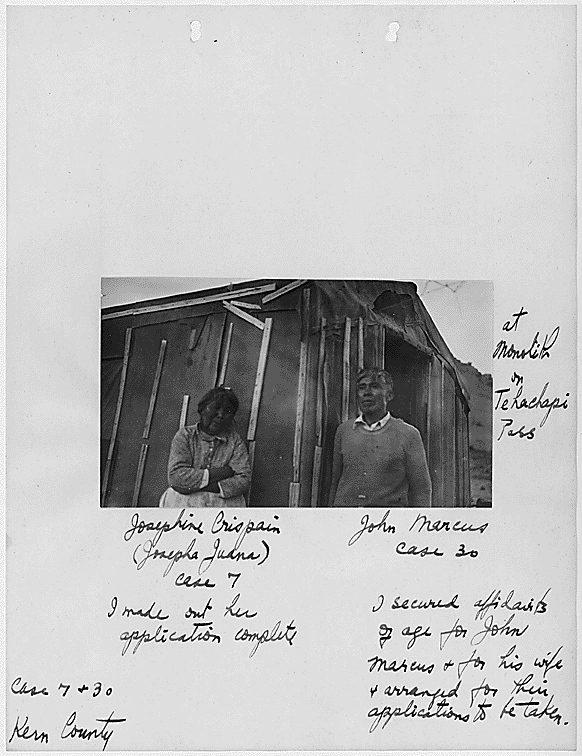 at
Monolith
on
Tehachapi
Pass
Josephine Crispain
(Josepha Juana)
case 7
I made out her
application complete
John Marcus
case 30
I secured affidavits
of age for John
Marcus & for his wife
& arranged for their
applications to be taken.
Case 7 & 30
Kern County